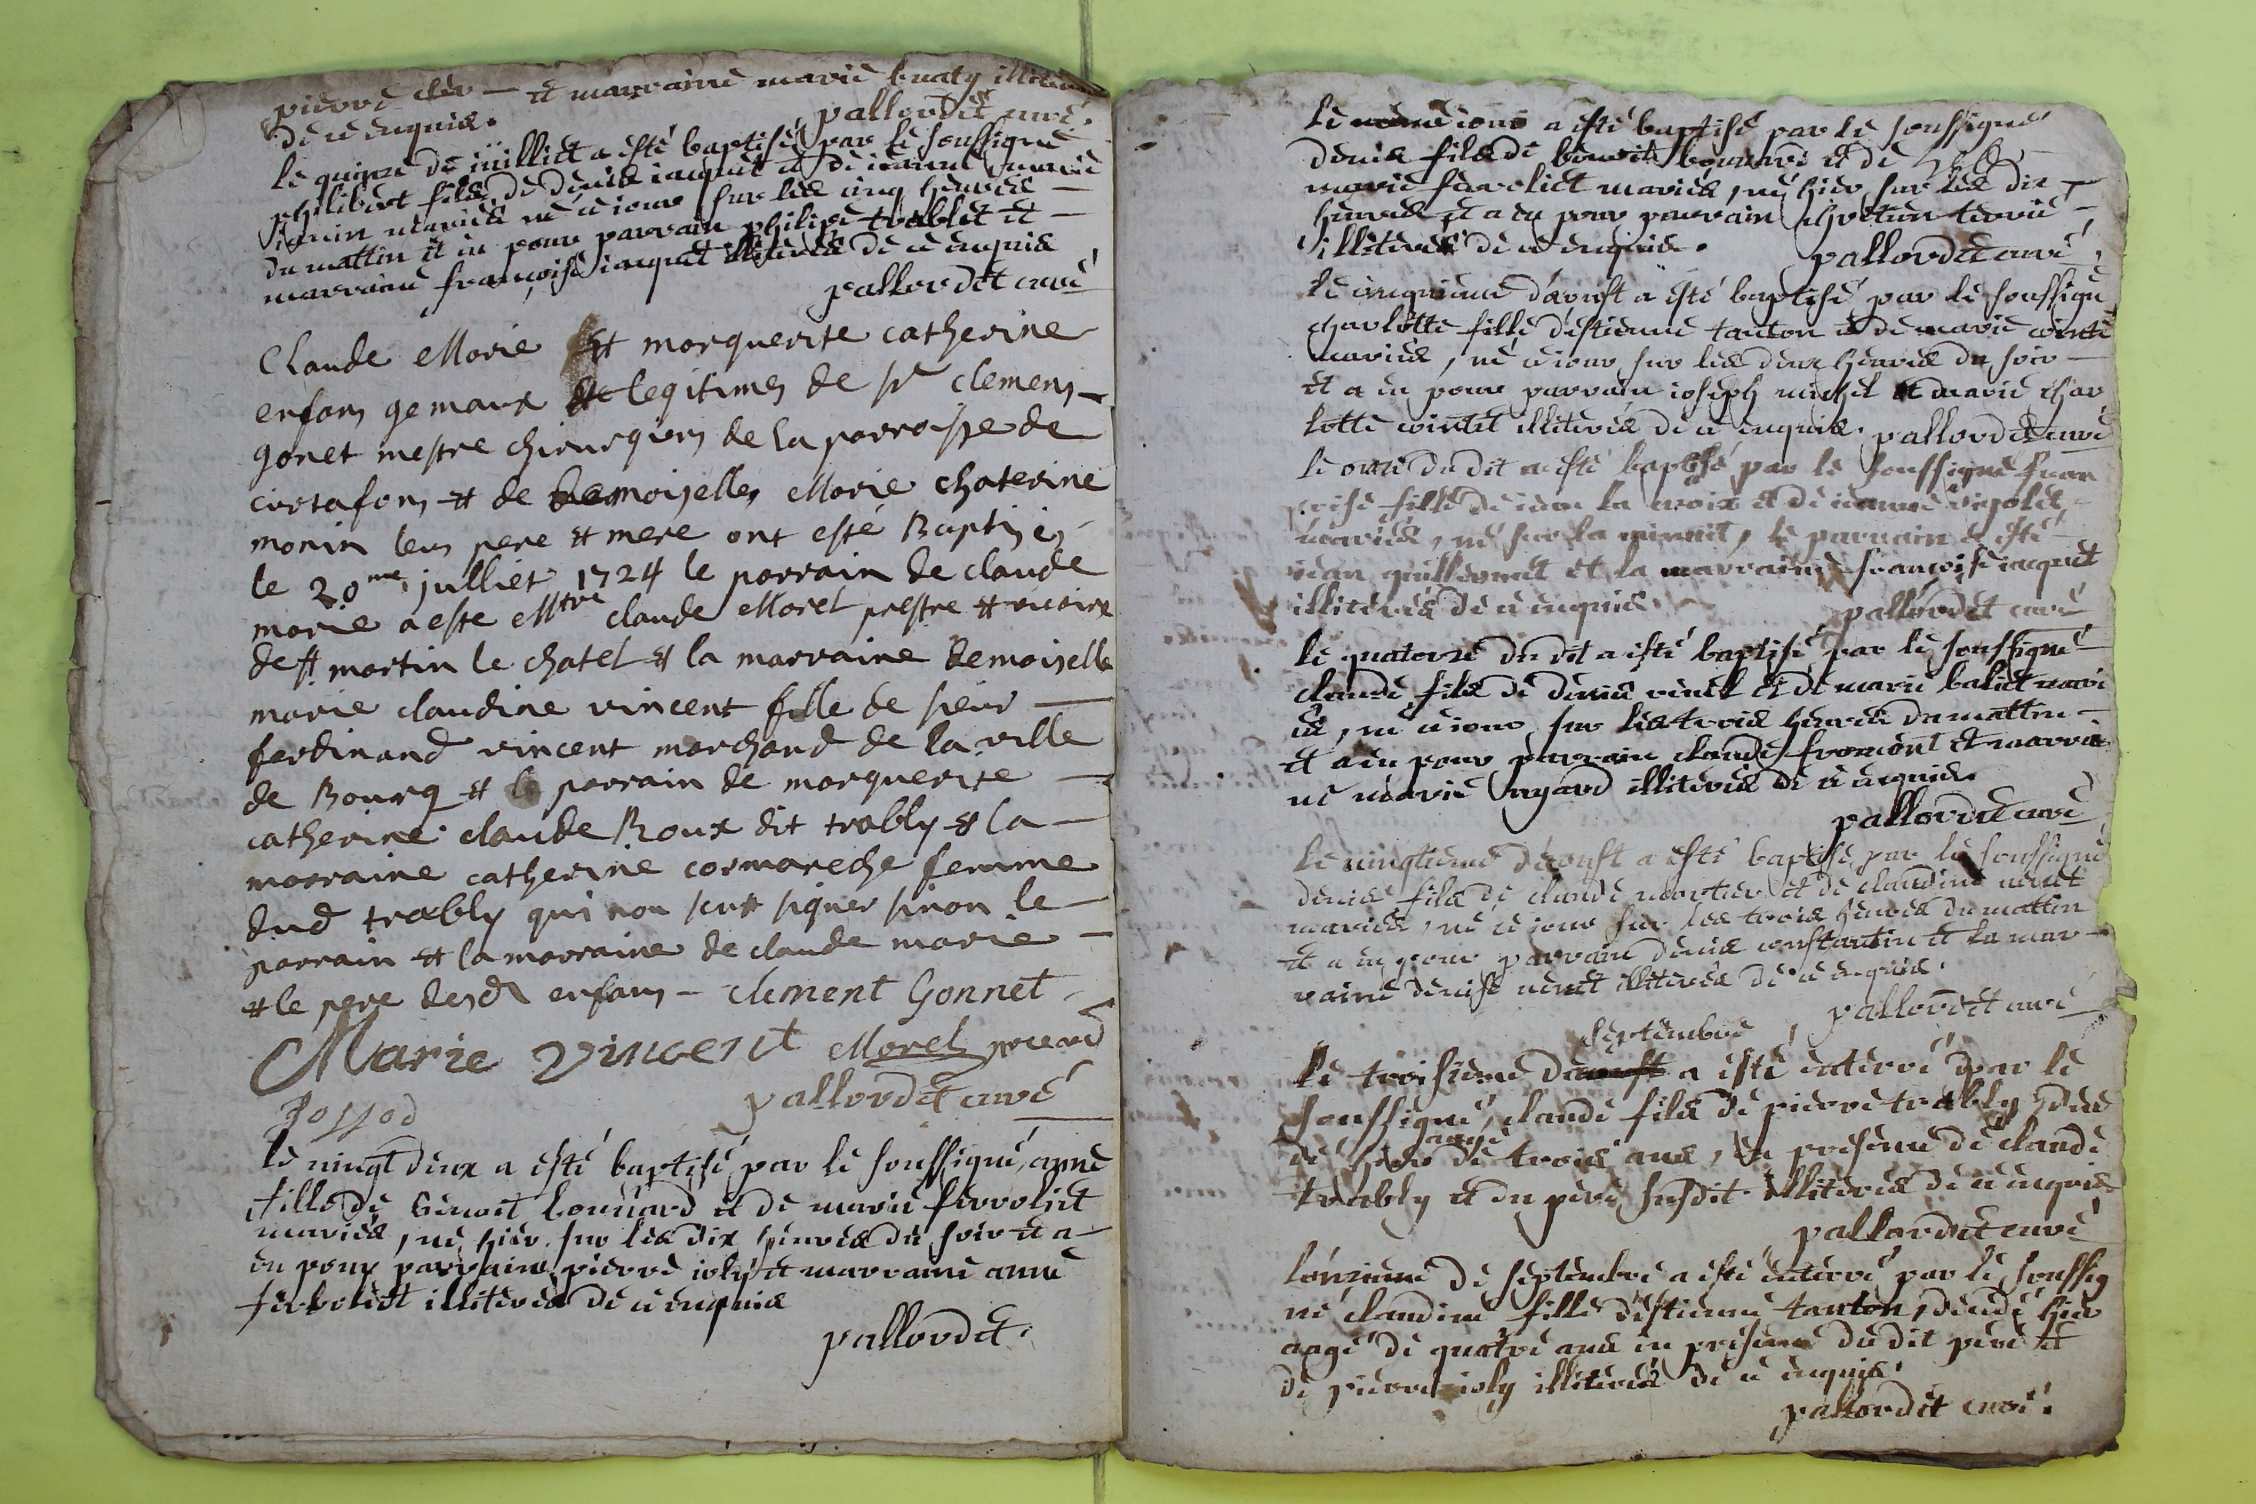 pierre clér — et marraine marie buaty illiterés
de ce enquis.
pallordet curé.
le quinze de iüillict a esté baptisé par le soussigné
philibert fils de denis iaquet et de ieanne marie
ianin mariés né ce iour sur les cinq heures —
du mattin et eu pour parrain philipe trablet et —
marraine françoise iaquet illiterés de ce enquis
pallordet curé
Claude Marie Et marguerite catherine
enfans gemaux et legitimes de sr clemens
gonet mestre chirurgiens de la parroisse de
curtafons et de demoiselles Marie chaterine
monin leur pere et mere ont esté Baptises
le 20me julliet 1724 le parrain de claude
marie a este Mtre claude Morel prestre et vicaire
de st martin le chatel et la marraine demoiselle
marie claudine vincent fille de sieur —
ferdinand vincent marchand de la ville
de Bourg et le parrain de marguerite —
catherine claude Roux dit trably et la —
marraine catherine cormareche femme
dud trably qui non seut signer sinon le —
parrain et la marraine de claude marie —
et le pere desd enfans — Clement Gonnet
Marie Vincent Morel
pallordet curé
le vingt deux a esté baptisé par le soussigné, anne
fille de benoit bouuard et de marie ferrolict
mariés, né hier sur les dix heures du soir et a —
eu pour parrain pierre ioly et marraine anne
ferrolict illiterés de ce enquis
pallordet.
le même iour a esté baptisé par le soussigné
denis fils de benoit bouuard et de
marie ferrolict mariés, né hier sur les dix —
heures et a eu pour parrain
illiterés de ce enquis.
pallordet curé,
le cinquieme d'aoust a esté baptisé par le soussigné
charlotte fille d'estienne tanton et de marie cointet
mariés, né ce iour sur les deux heures du soir —
et a eu pour parrain ioseph michel et marie char
lotte cointet illiterés de ce enquis. pallordet curé
le onze du dit a esté baptisé par le soussigné fran
çoise fille de iean la croix et de ieanne
mariés, né sur la minuit, le parrain a esté
iean guillermet et la marraine françoise iaquet
illiterés de ce enquis.
pallordet curé
le quatorze du dit a esté baptisé par le soussigné
claude fils de denis et de marie baliet mari
és, né ce iour sur les trois heures du mattin —
et a eu pour parrain claude fromont et marrai
ne marie illiterés de ce enquis.
pallordet curé
le vingtieme d'aoust a esté baptisé par le soussigné
denis fils de claude mortier et de claudine
mariés, né ce iour sur les trois heures du mattin
et a eu pour parrain denis constantin et la mar —
raine denise illiterés de ce enquis.
pallordet curé
septembre
le troisieme d'aoust a esté enterré par le
soussigné, claude fils de pierre trably dece
dé hier agé de trois ans, en presence de claude
trably et du pere susdit illiterés de ce enquis
pallordet curé
l'onzieme de septembre a esté enterré par le soussig
né claudine fille d'estienne tanton, decedé hier
aagé de quatre ans en presence du dit pere et
de pierre ioly illiterés de ce enquis
pallordet curé.